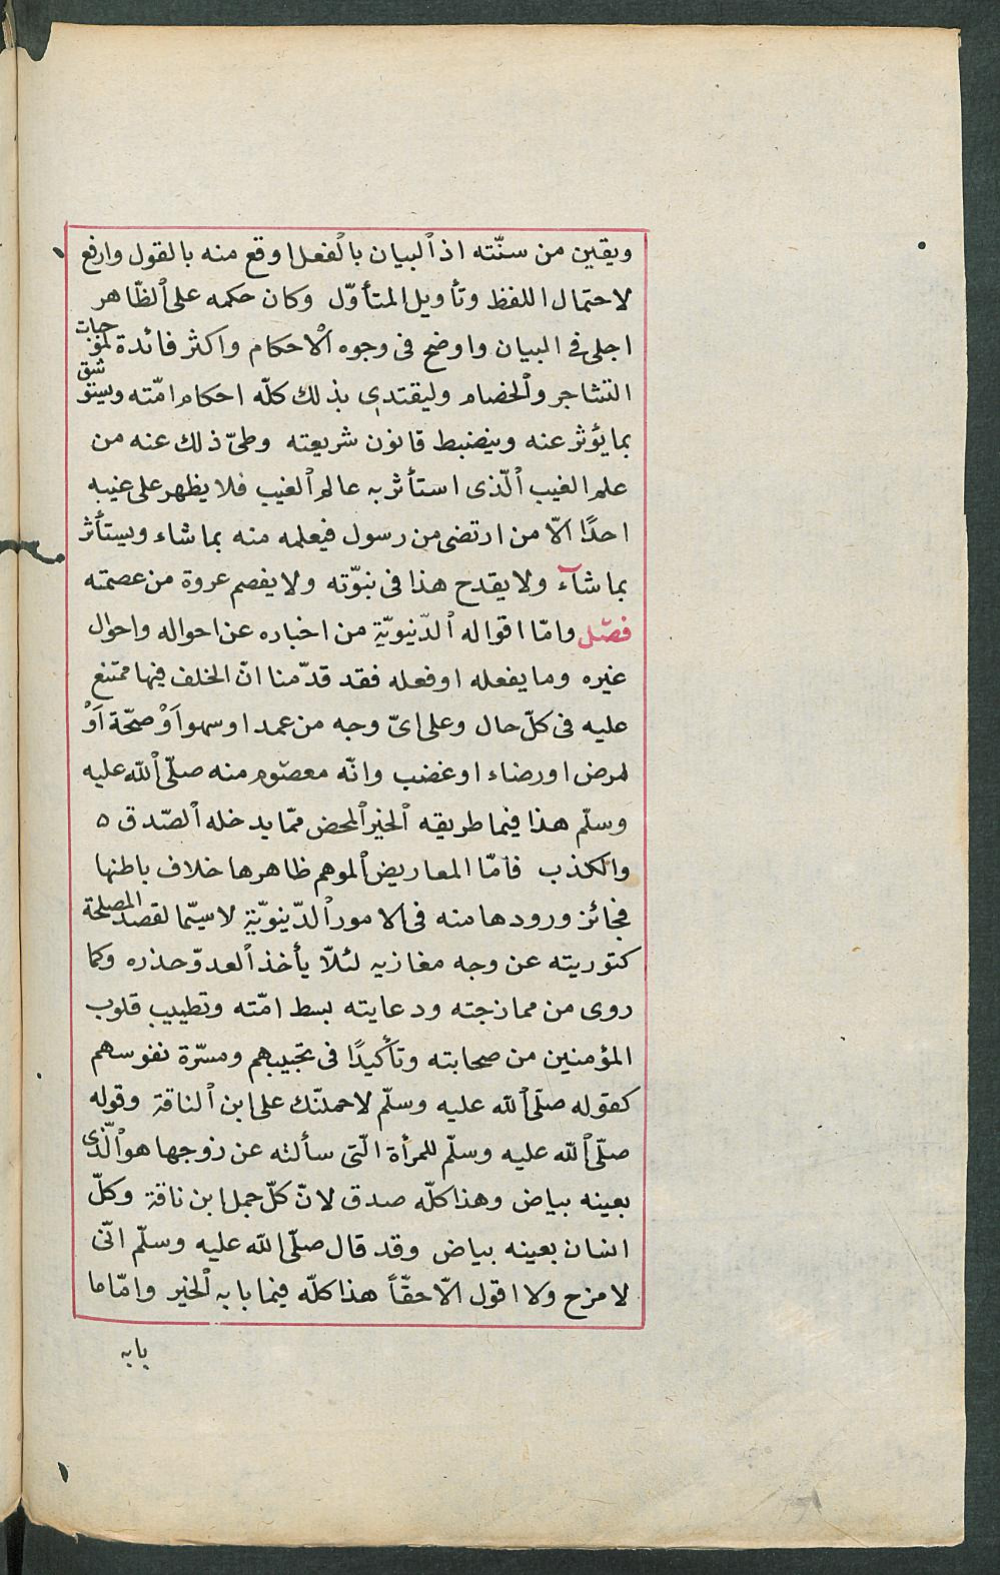 ويقين من سنّته اذ البيان بالفعل اوقع منه بالقول وارفع
لاحتمال اللفظ وتأويل المتأوّل وكان حكمه على الظّاهر
اجلى فى البيان واوضح فى وجوه الاحكام واكثر فائدة لموجبات
التشاجر والخصام وليقتدى بذلك كلّه احكام امّته ويستوشق
بما يؤثر عنه وينضبط قانون شريعته وطىّ ذلك عنه من
علم الغيب الّذى استأثر به عالم الغيب فلا يظهر على غيبه
احدًا الّا من ارتضى من رسول فيعلمه منه بما شاء ويستأثر
بما شآء ولا يقدح هذا فى نبوّته ولا يفصم عروة من عصمته
فصل وامّا اقواله الدّنيويّة من اخباره عن احواله واحوال
غيره وما يفعله او فعله فقد قدّمنا انّ الخلف فيها ممتنع
عليه فى كلّ حال وعلى اىّ وجه من عمد او سهو اَوْ صحّة اَوْ
لمرض او رضاء او غضب وانّه معصوم منه صلّى الله عليه
وسلّم هذا فيما طريقه الخبر المحض ممّا يدخله الصّدق ه
والكذب فامّا المعاريض الموهم ظاهرها خلاف باطنها
فجائز ورودها منه فى الامور الدّينويّة لا سيّما لقصد المصلحة
كتوريته عن وجه مغازيه لئلّا يأخذ العدوّ حذره وكما
روى من ممازجته ودعايته بسط امّته وتطييب قلوب
المؤمنين من صحابته وتأكيدًا فى تحبيبهم ومسرّة نفوسهم
كقوله صلّى الله عليه وسلّم لاحملنّك على ابن الناقة وقوله
صلّى الله عليه وسلّم للمرأة الّتى سألته عن زوجها هو الّذى
بعينه بياض وهذا كلّه صدق لانّ كلّ جمل ابن ناقة وكلّ
انسان بعينه بياض وقد قال صلّى الله عليه وسلّم انّى
لامزح ولا اقول الّا حقّاً هذا كلّه فيما بابه الخبر وامّا ما
بابه